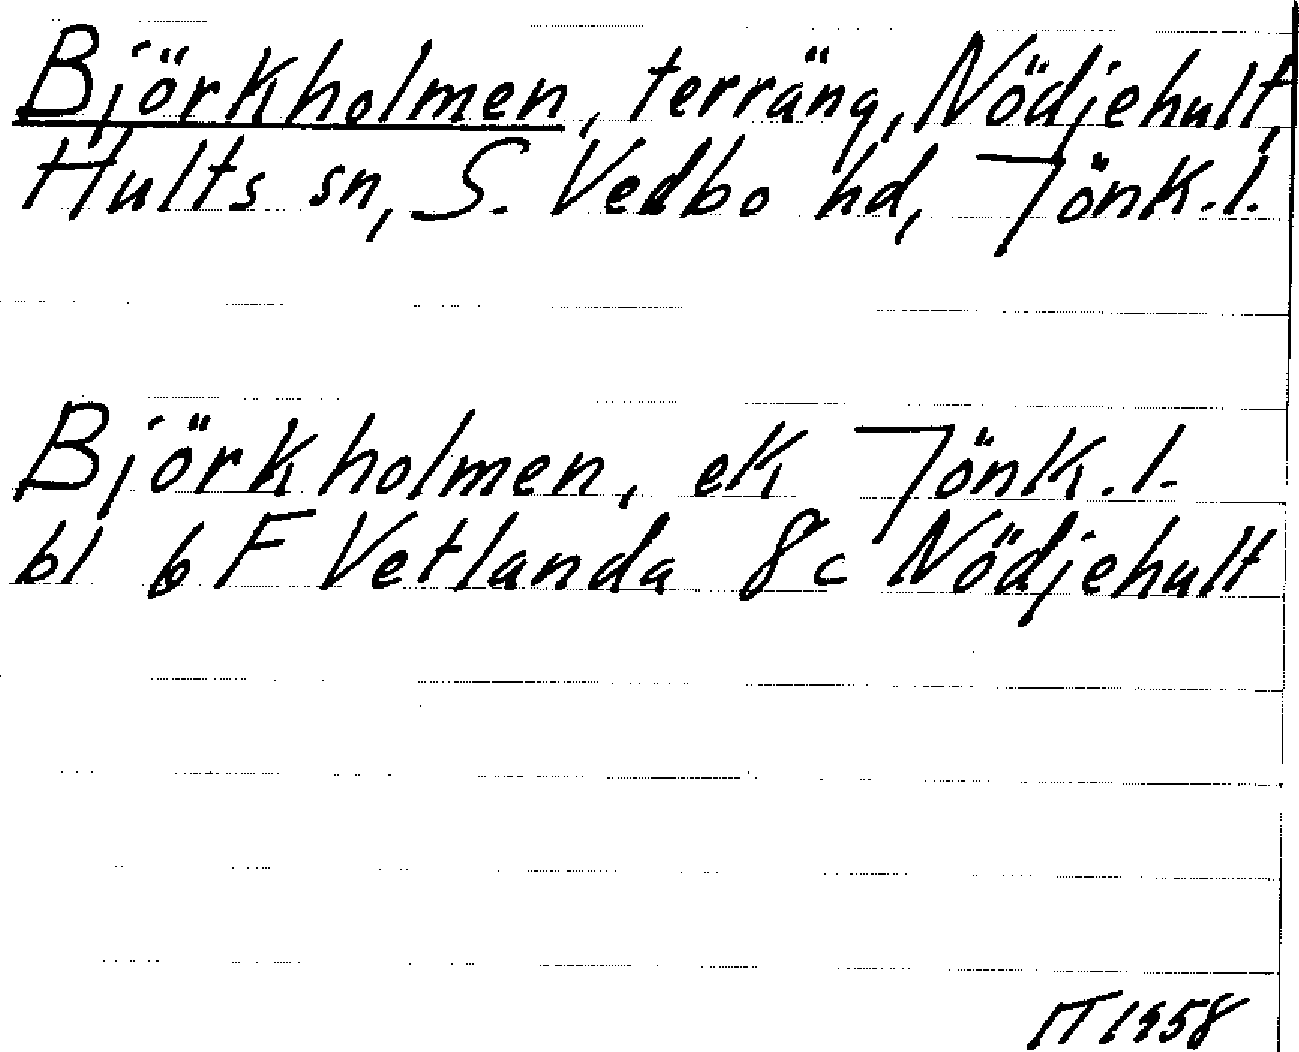 Björkholmen, terräng, Nödjehult,
Hults sn, S. Vedbo hd, Jönk.l.
Björkholmen, ek Jönk.l.
bl 6 F Vetlanda 8c Nödjehult
1958